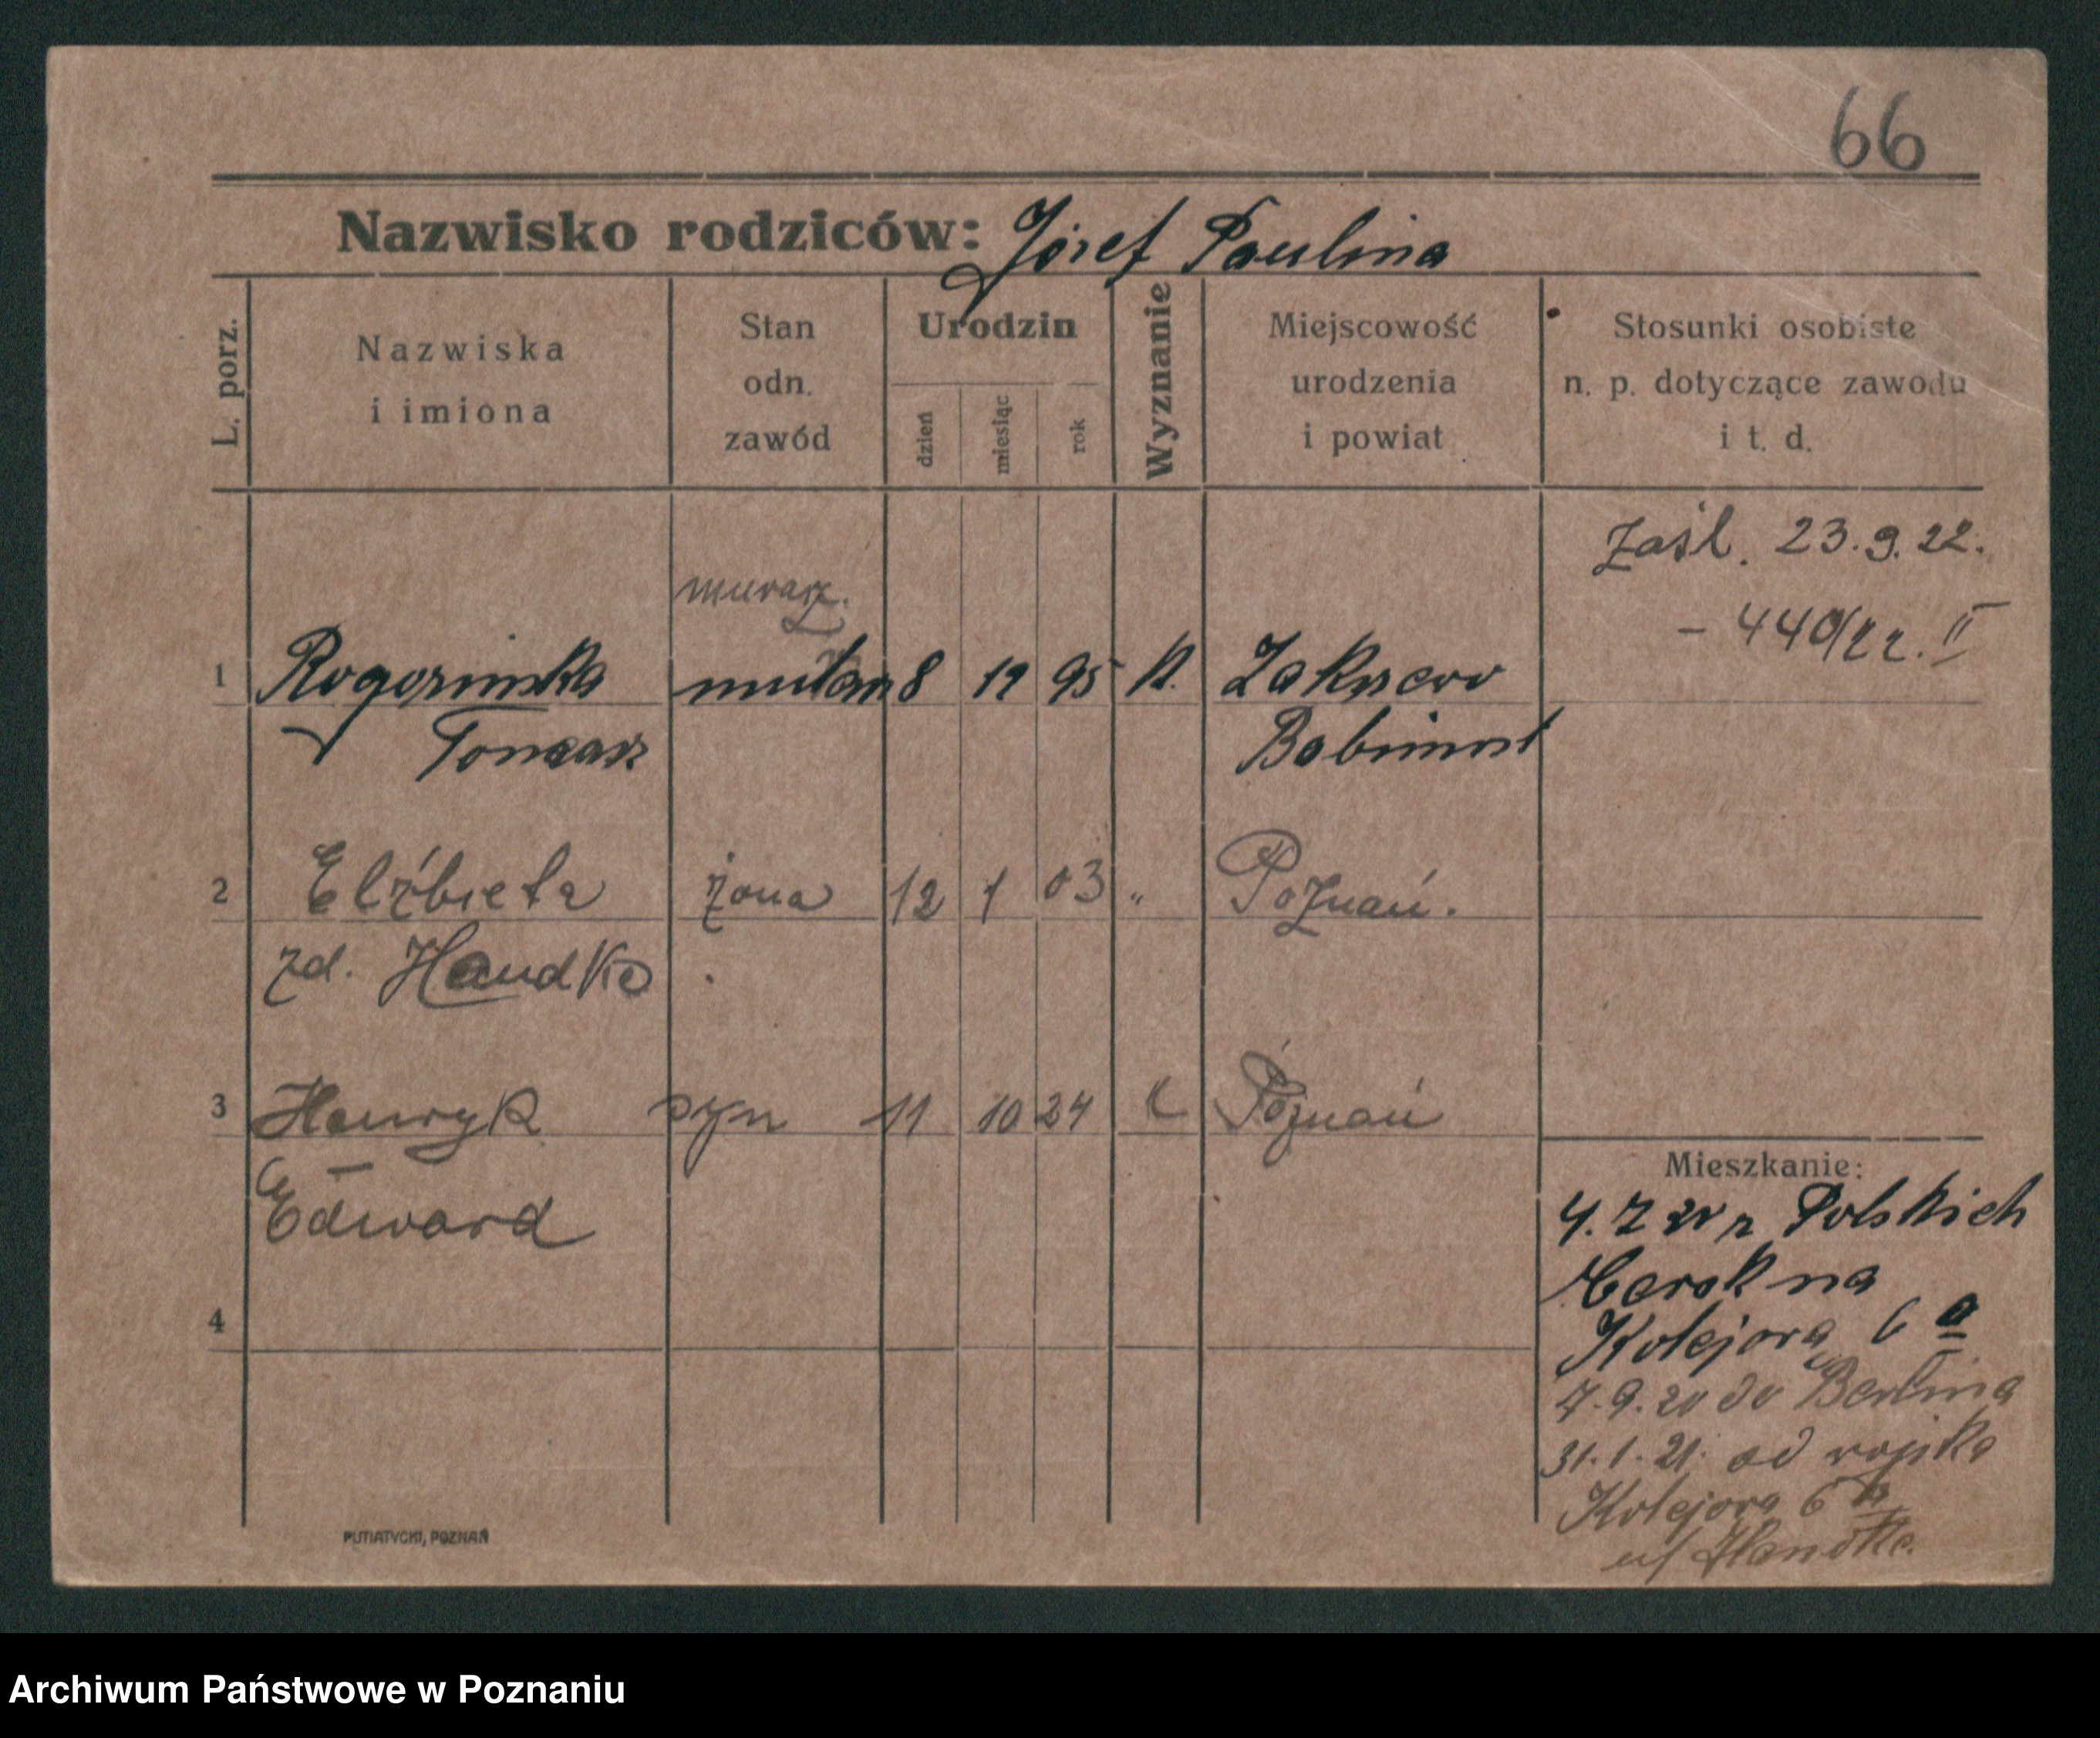 66
Nazwisko rodziców: Józef Paulina
L. porz.
Nazwiska
i imiona
Stan
odn.
zawód
Urodzin
dzień
miesiąc
rok
Wyznanie
Miejscowość
urodzenia
i powiat
Stosunki osobiste
n. p. dotyczące zawodu
i t. d.
Zaśl. 23.9.22.
- 440/22. II
murarz.
1 8 12 95 K.
Tomasz Babimost
2 Elżbieta żona 12 1 03 " Poznań.
zd. Handke
3 Henryk syn 11 10 24 K Poznań
Edward
4
Mieszkanie:
4.7 20 z Polskich
na
Kolejowa 6 a
7.9.20 do Berlina
31.1.21. od wojska
Kolejowa 6
u/ Handke.
PUTIATYCKI, POZNAŃ
Archiwum Państwowe w Poznaniu